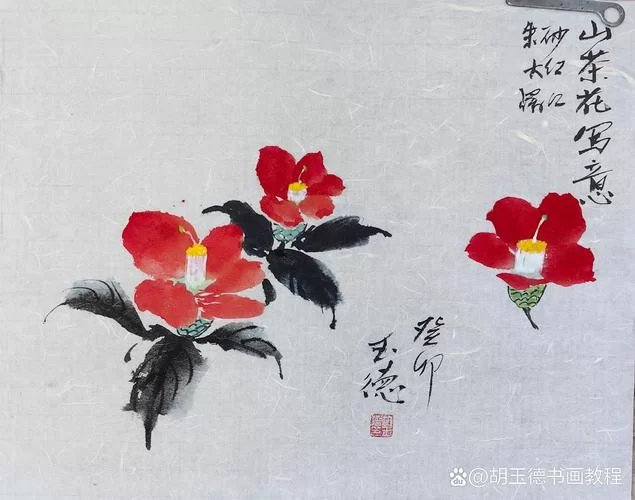 山茶花写意
朱砂
大红
曙红
癸卯
玉德
胡玉德书画教程